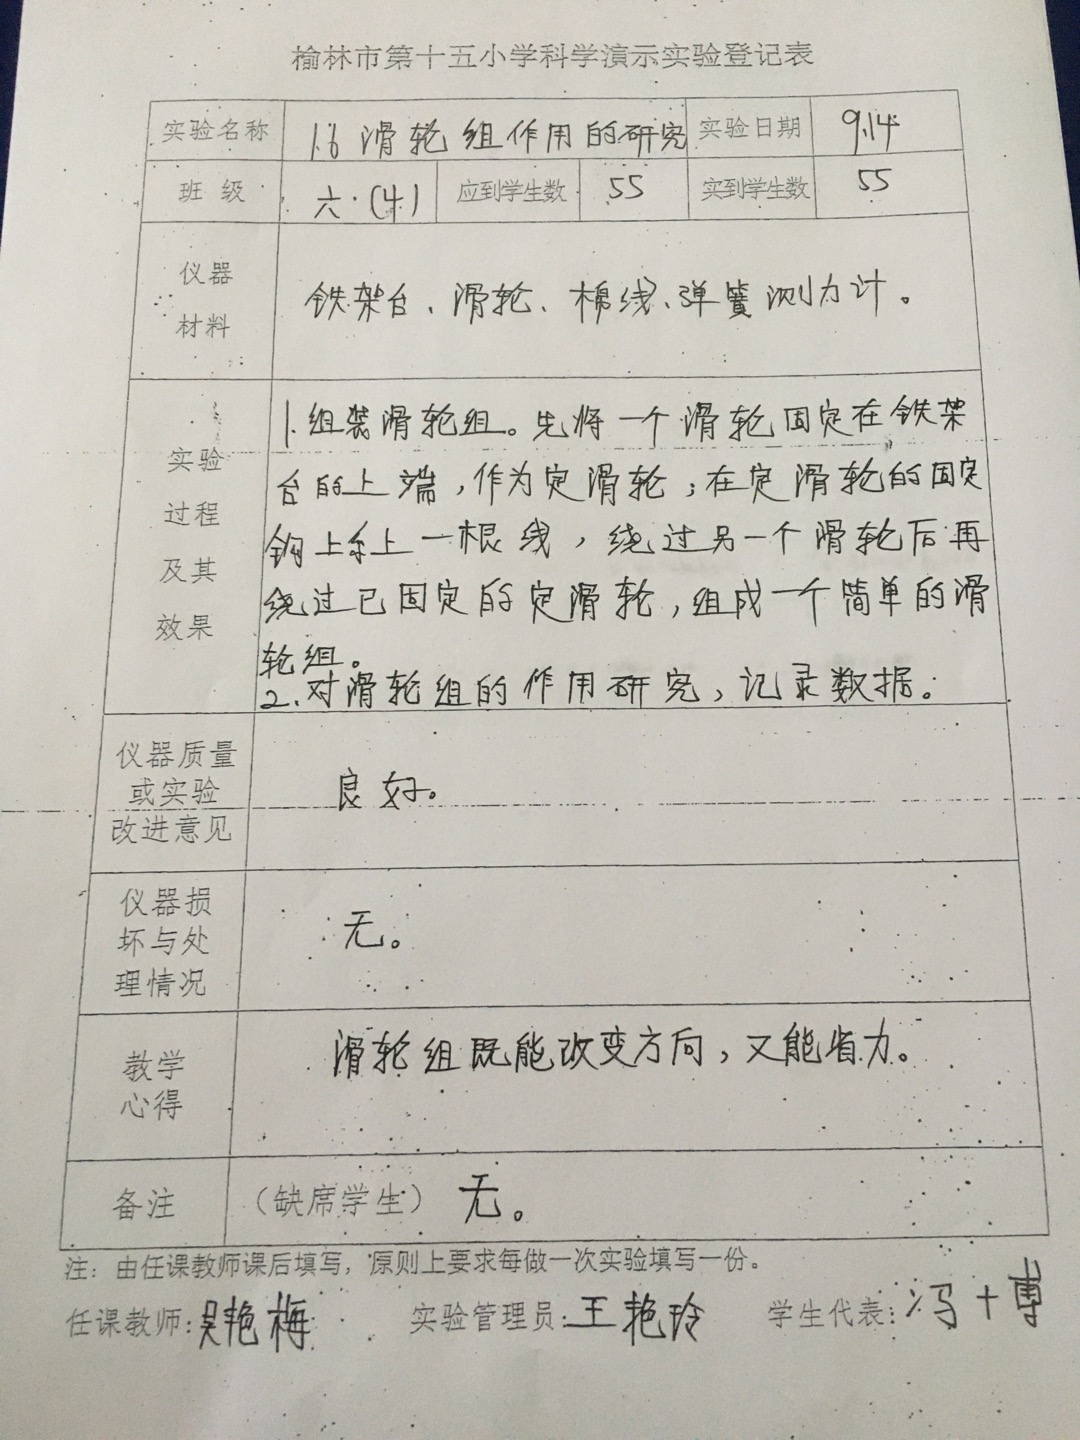 榆林市第十五小学科学演示实验登记表
实验名称 1.6 滑轮组作用的研究 实验日期 9.14
班级 六.(4) 应到学生数 55 实到学生数 55
仪器
材料
铁架台、滑轮、棉线、弹簧测力计。
实验
过程
及其
效果
1.组装滑轮组。先将一个滑轮固定在铁架
台的上端,作为定滑轮;在定滑轮的固定
钩上系上一根线,绕过另一个滑轮后再
绕过已固定的定滑轮,组成一个简单的滑
轮组。
2.对滑轮组的作用研究,记录数据。
仪器质量
或实验
改进意见
良好。
仪器损
坏与处
理情况
无。
教学
心得
滑轮组既能改变方向,又能省力。
备注 (缺席学生) 无。
注:由任课教师课后填写,原则上要求每做一次实验填写一份。
任课教师:吴艳梅 实验管理员:王艳玲 学生代表:冯十博